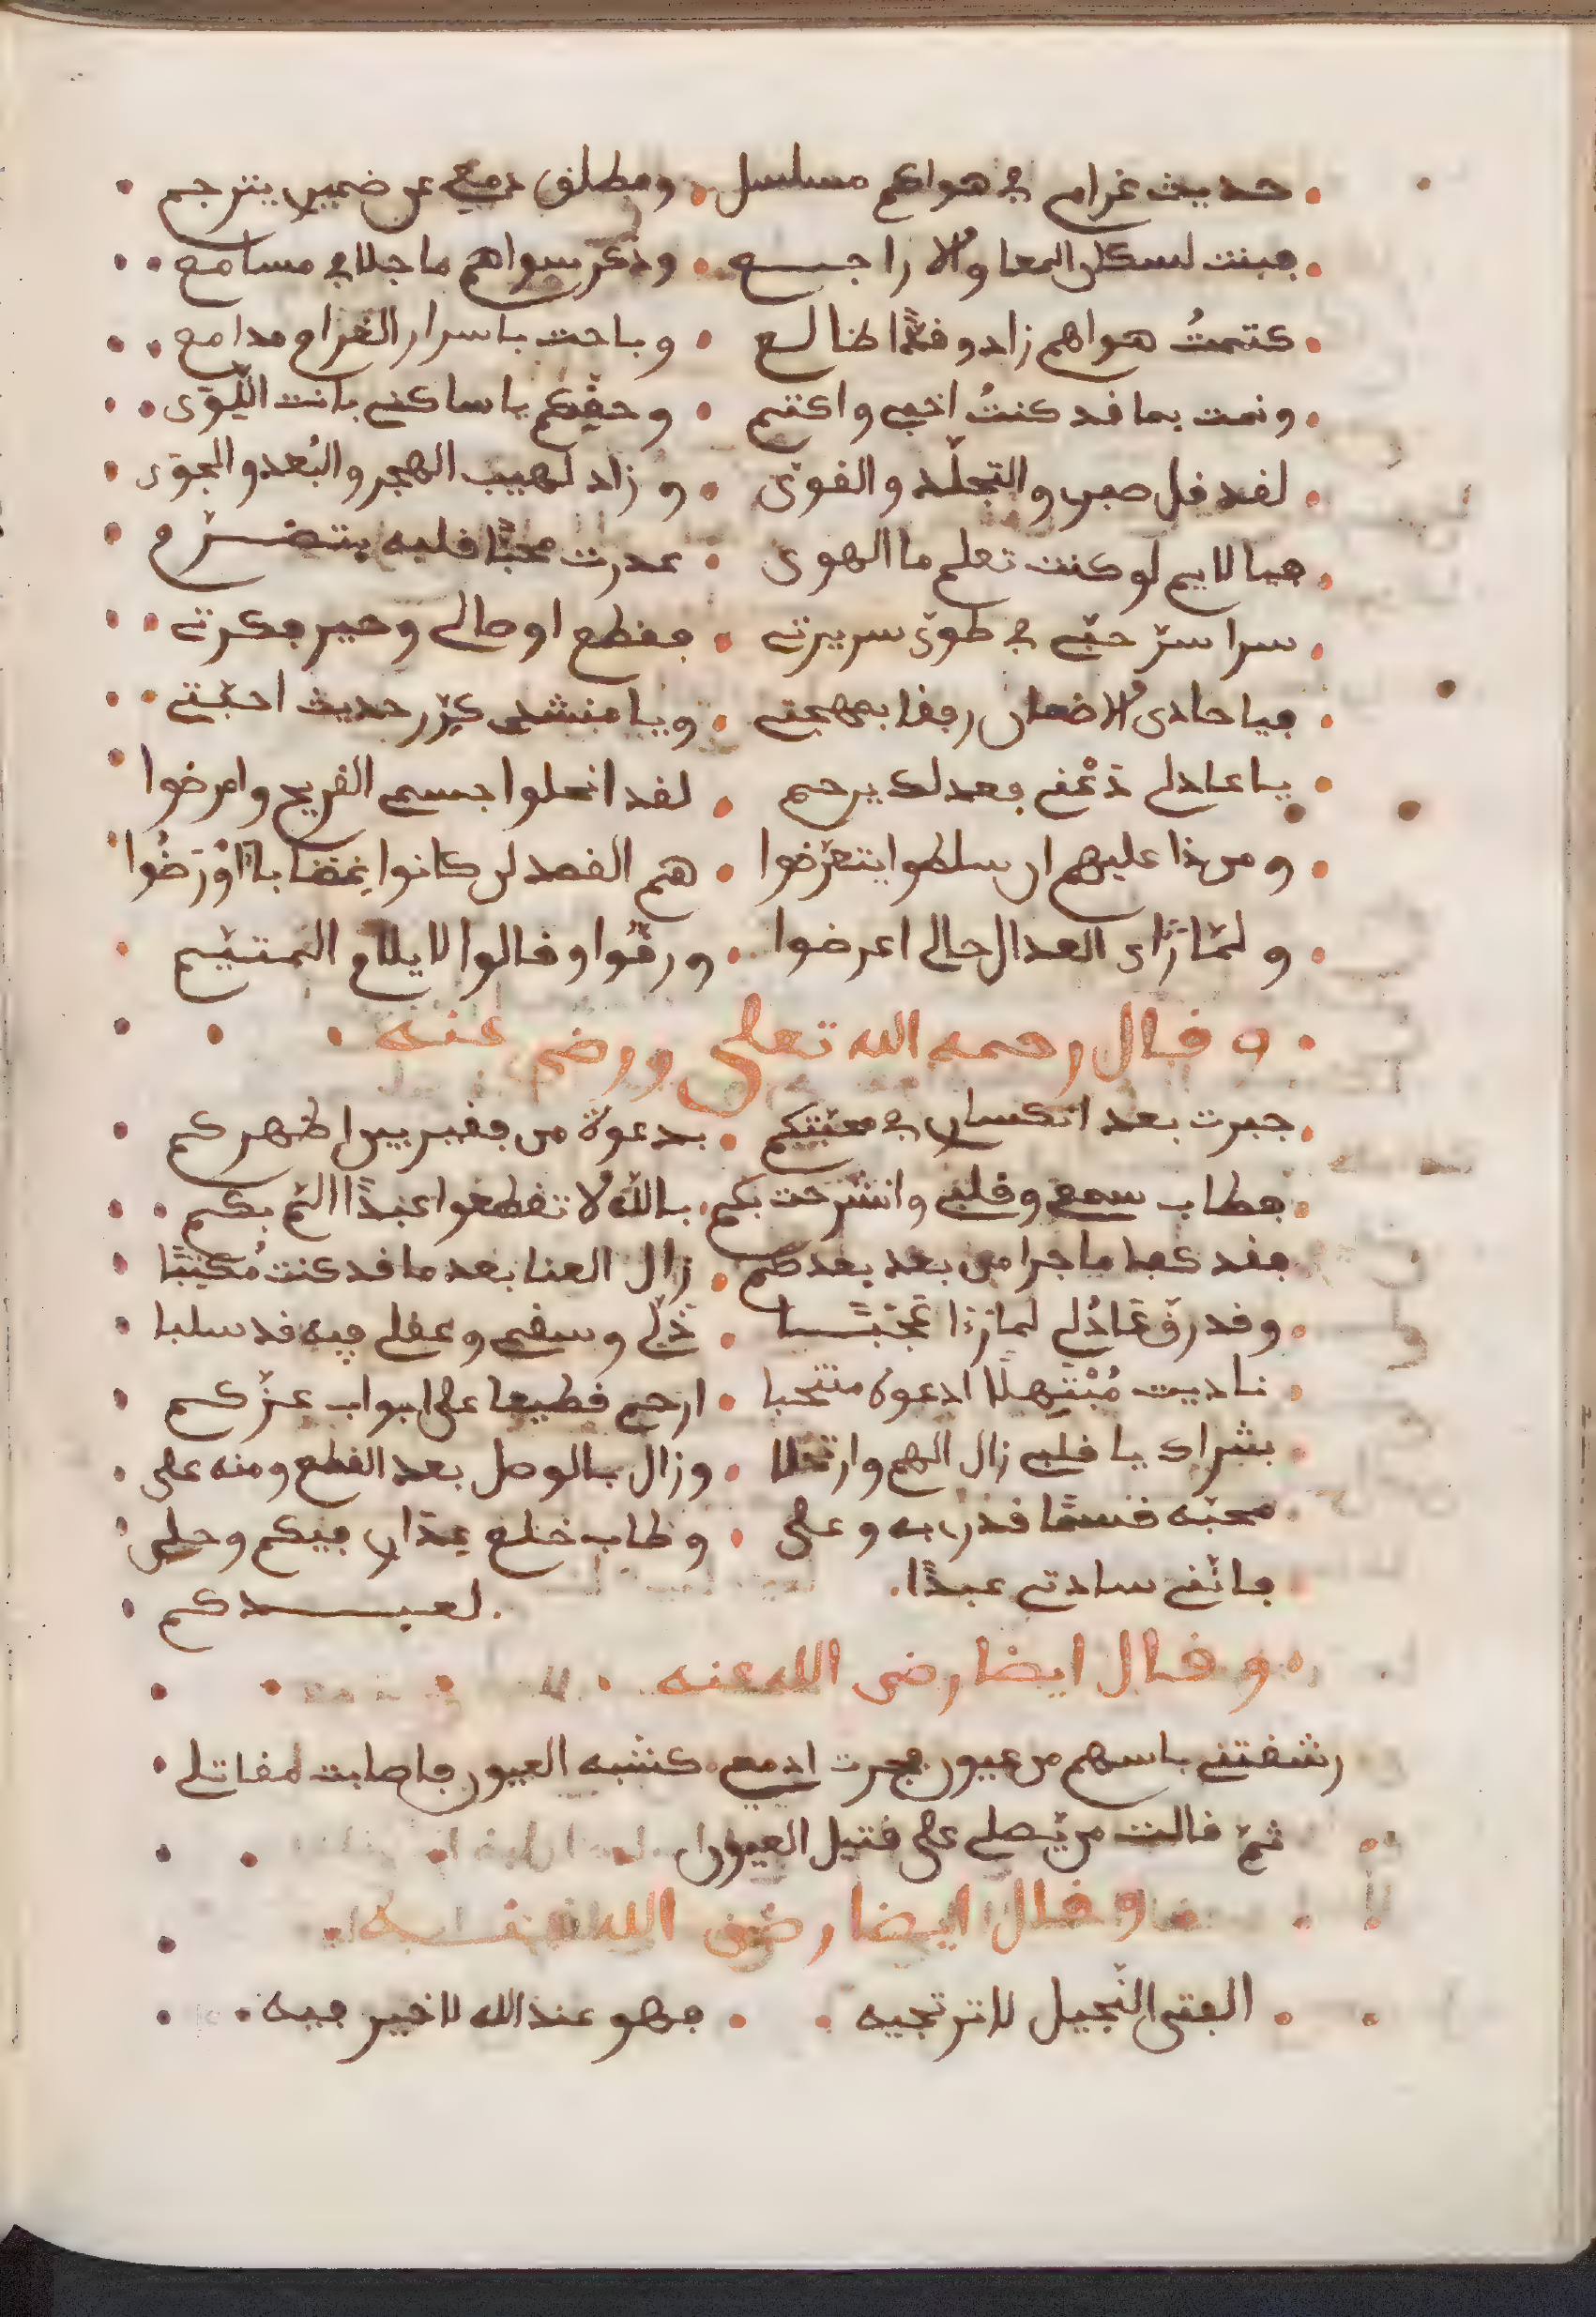 حديث غرامي في هواكم مسلسل . ومطلق دمعي عن ضميري يترجم
فبنت لسكان الحما والا راجع . وذكر سواهم ما جلا في مسامع
كتمتُ هواهم زاد وقدًا طالع . وباحت باسرار الغرام مدامع
ونمت بما قد كنتُ اخفي واكتم . وحقّكم يا ساكني بانت اللّوى
لقد قل صبري والتجلّد والقوى . وزاد لهيب الهجر والبُعد والجوى
فيا لايم لو كنت تعلم ما الهوى . عدرت محبًّا قلبه يتضرّم
سرا سرّ حبّي في طوى سريرتي . فقطع اوصالي وحير فكرتي
فيا حادى الاضعان رفقا بمهجتي . ويا منشدي كرّر حديث احبّتي
يا عادلي دَعْني فعدلك يرحم . لقد انحلوا جسمي القريح وامرضوا
ومن ذا عليهم ان سلطوا يتعرّضوا . هم القصد لن كانوا غِضَابا اوْ رَضُوا
ولمّا رَاى العدال حالي اعرضوا . ورقّوا وقالوا لا يلام المتيّم
وقال رحمه الله تعلى ورضي عنه
جبرت بعد انكساري في محبّتكم . بدعوة من فقير بين اظهركم
فطاب سمعي وقلبي وانشرحت بكم . بالله لا تقطعوا عبدًا التم بكم
فقد كفا ما جرا من بعد بعدكم . زال العنا بعد ما قد كنت مُكتئبًا
وقد رقّ عَادُلي لما رءا عَجَبًا . ذلّي وسقمي وعقلي فيه قد سلبا
ناديت مُبْتَهِلًا ادعوه منتحبا . ارحم قطيعا على ابواب عزّكم
بشراك يا قلبي زال الهم وارتحلا . وزال بالوصل بعد القطع ومنه على
محبّه قسمًا قدري به وعلى . وطاب خلع عِذَاري فيكم وحلى
فانّني سادتي عبدًا . لعبدكم
وقال ايضا رضي الله عنه
رشفتني باسهم من عيون فجرت ادمعي . كشبه العيون فاصابت لمقاتلي
ثمّ قالت من يّصلي على قتيل العيون
وقال ايضا رضي الله عنه
الفتى البخيل لا ترتجيه . فهو عند الله لا خير فيه